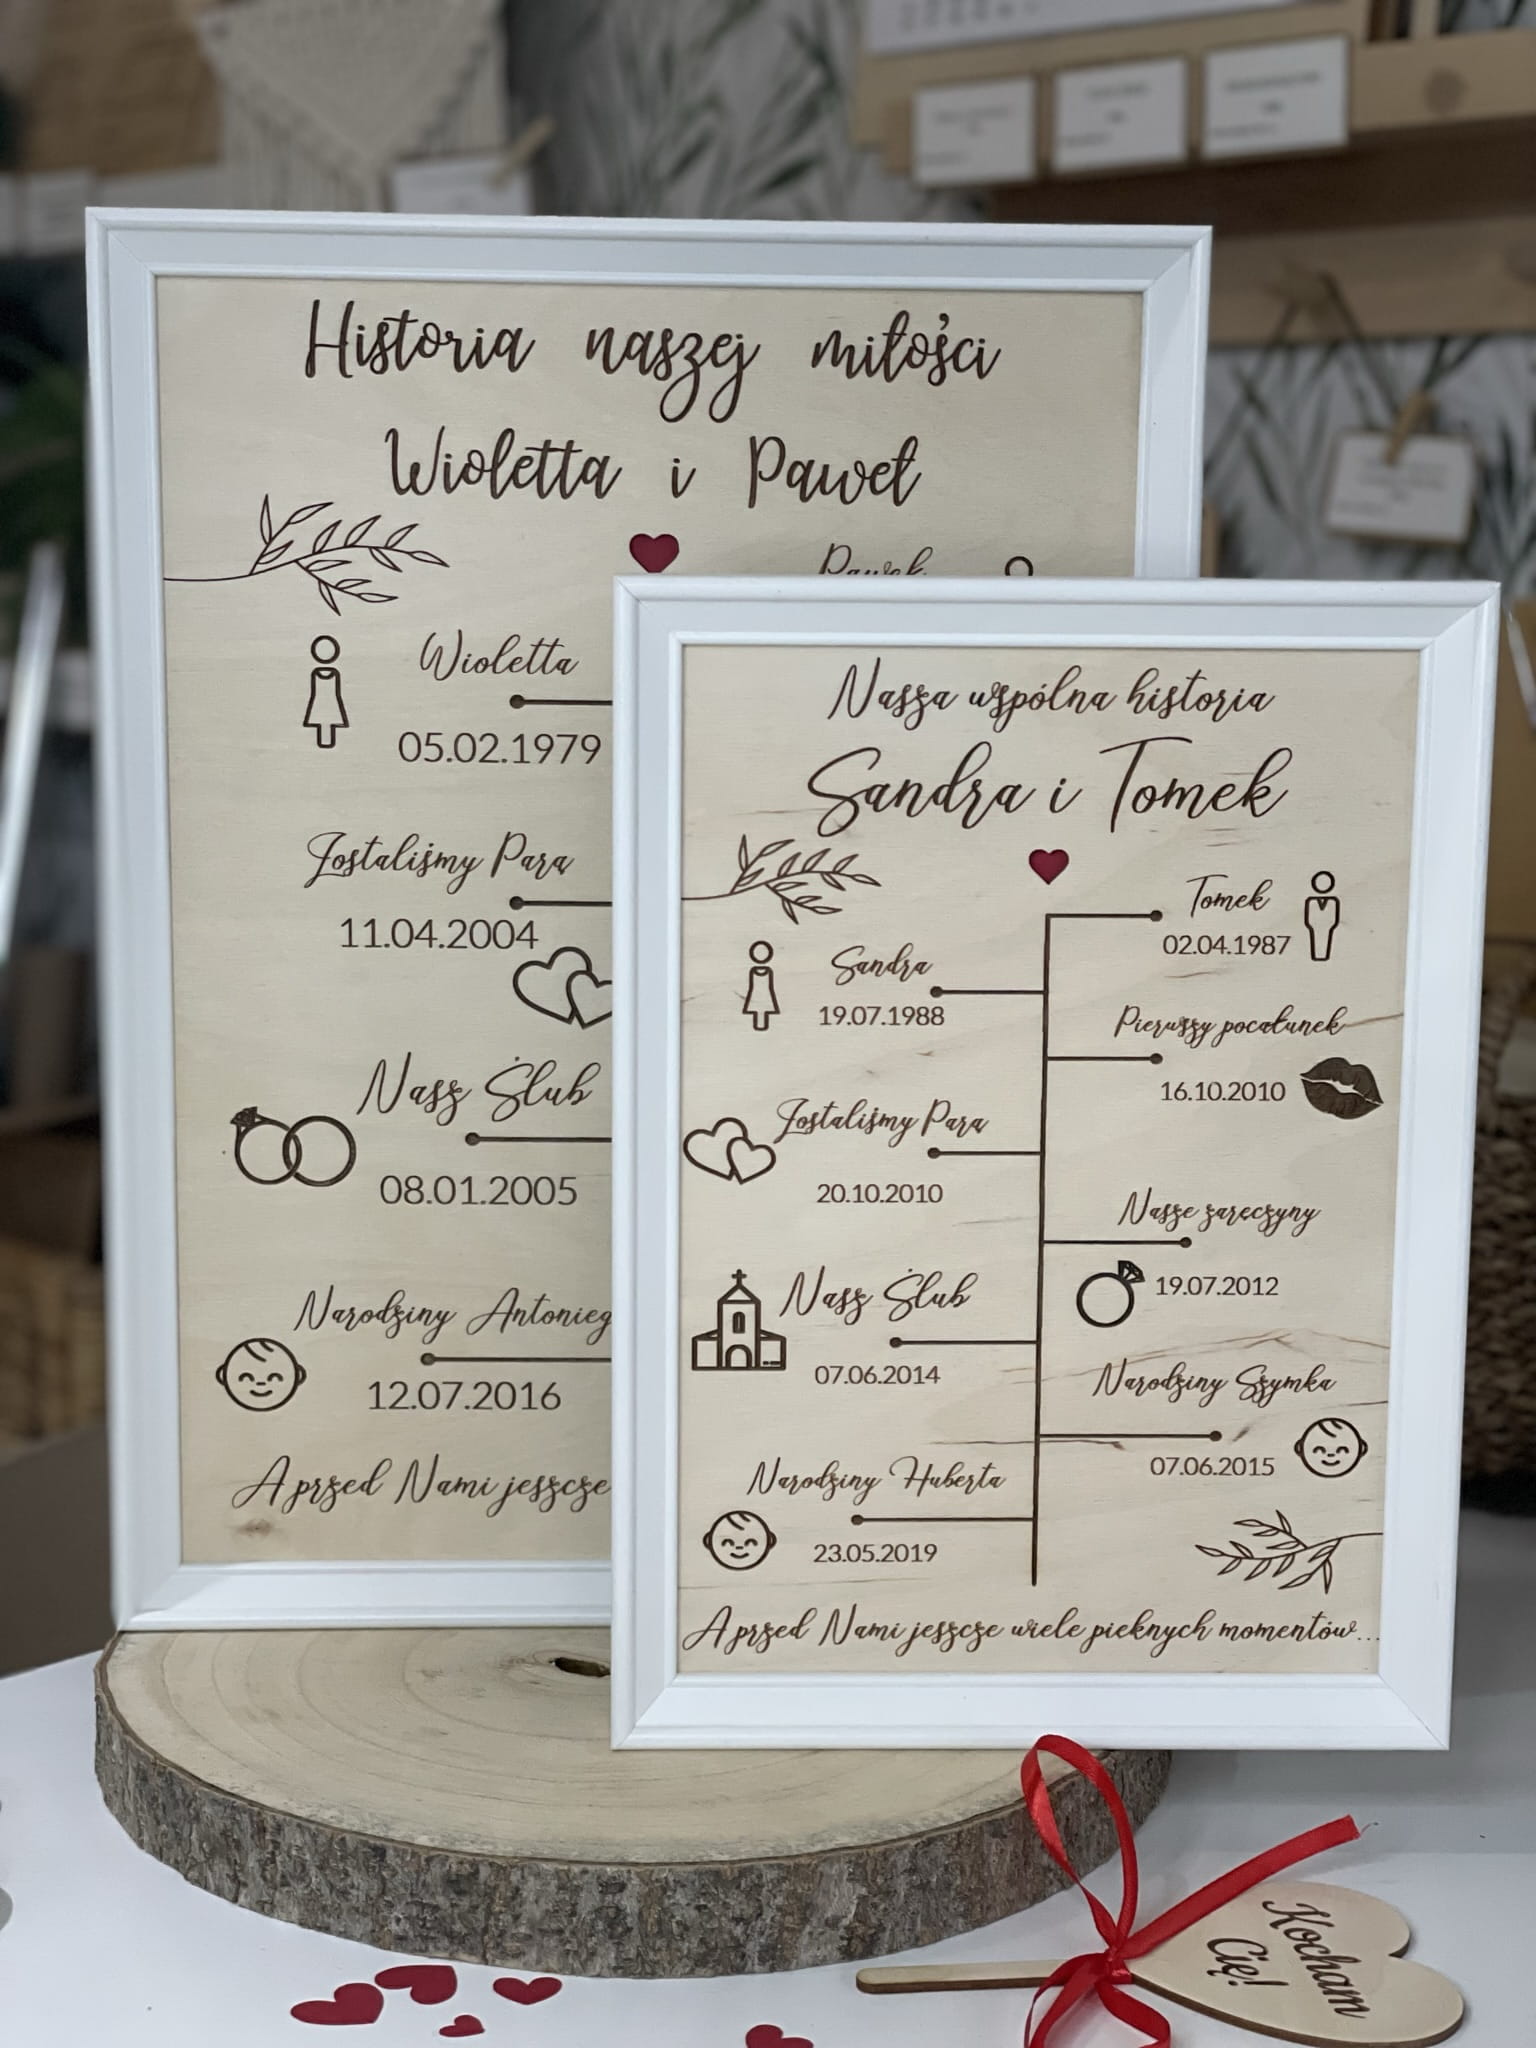 Historia naszej miłości
Wioletta i Paweł
Wioletta
05.02.1979
Zostaliśmy Parą
11.04.2004
Nasz Ślub
08.01.2005
Narodziny
12.07.2016
A przed Nami jeszcze
Nasza wspólna historia
Sandra i Tomek
Tomek
02.04.1987
Sandra
19.07.1988
Pierwszy pocałunek
16.10.2010
Zostaliśmy Parą
20.10.2010
Nasze zaręczyny
19.07.2012
Nasz Ślub
07.06.2014
Narodziny Szymka
07.06.2015
Narodziny Huberta
23.05.2019
A przed Nami jeszcze wiele pieknych momentów...
Kocham
Cię!